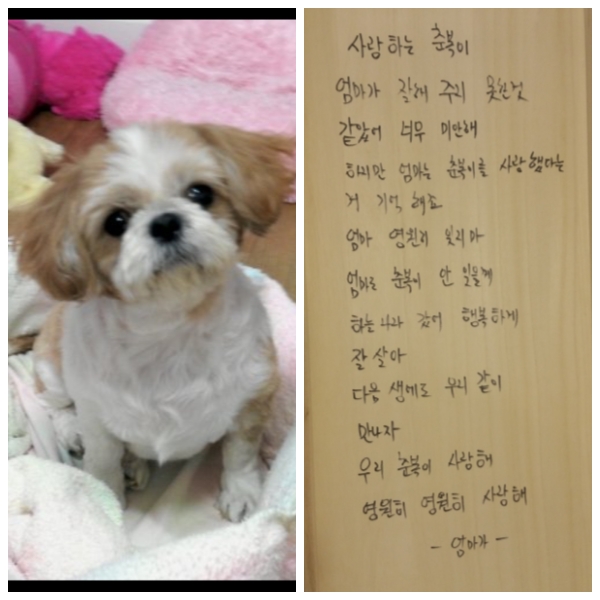 사랑하는 춘복이
엄마가 잘해 주지 못한것
같았어 너무 미안해
하지만 엄마는 춘복이를 사랑했다는
거 기억해죠
엄마 영원히 잊지마
엄마도 춘복이 안 잊을께
하늘나라 갔어 행복하게
잘 살아
다음 생에도 우리 같이
만나자
우리 춘복이 사랑해
영원히 영원히 사랑해
- 엄마가 -